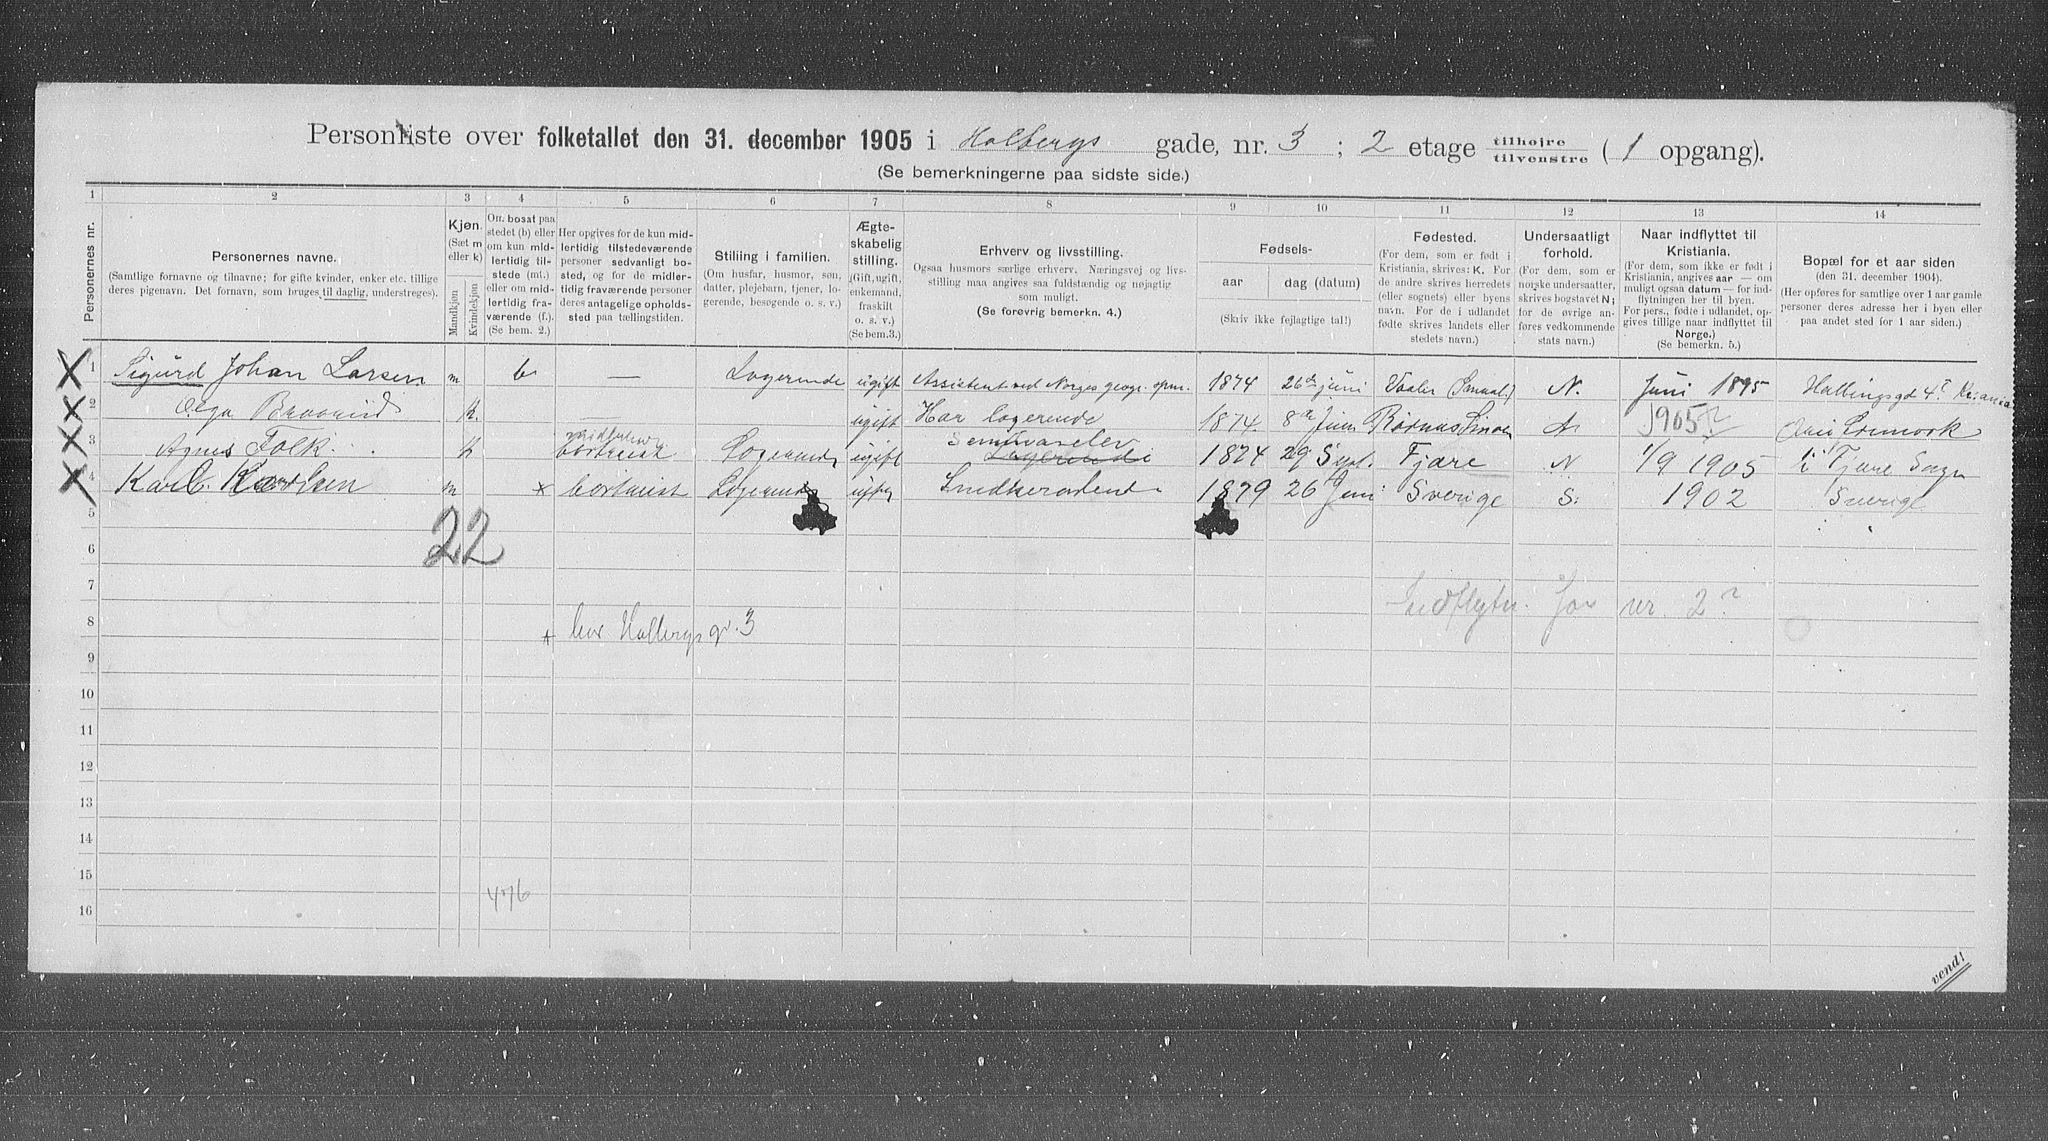 Personliste over folketallet den 31. december 1905 i Holbergs gade, nr. 3 ; 2 etage tilhøjre tilvenstre ( 1 opgang).
(Se bemerkningerne paa sidste side.)
1 2 3 4 5 6 7 8 9 10 11 12 13 14
Personernes nr.
Personernes navne.
(Samtlige fornavne og tilnavne; for gifte kvinder, enker etc. tillige
deres pigenavn. Det fornavn, som bruges til daglig, understreges).
Kjøn.
(Sæt m
eller k)
Mandkjøn
Kvindekjøn
Om bosat paa
stedet (b) eller
om kun mid-
lertidig til-
stede (mt.)
eller om mid-
lertidig fra-
værende (f.).
(Se bem. 2.)
Her opgives for de kun mid-
lertidig tilstedeværende
personer sedvanligt bo-
sted, og for de midler-
tidig fraværende personer
deres antagelige opholds-
sted paa tællingstiden.
Stilling i familien.
(Om husfar, husmor, søn,
datter, plejebarn, tjener, lo-
gerende, besøgende o. s. v.)
Ægte-
skabelig
stilling.
(Gift, ugift,
enkemand,
fraskilt
o. s. v.)
(Se bem.3.)
Erhverv og livsstilling.
Ogsaa husmors særlige erhverv. Næringsvej og livs-
stilling maa angives saa fuldstændig og nøjagtig
som muligt.
(Se forøvrig bemerkn. 4.)
Fødsels-
aar dag (datum)
(Skriv ikke fejlagtige tal!)
Fødested.
(For dem, som er født i
Kristiania, skrives: K. For
de andre skrives herredets
(eller sognets) eller byens
navn. For de i udlandet
fødte skrives landets eller
stedets navn.)
Undersaatligt
forhold.
(For dem, som er
norske undersaatter,
skrives bogstavet N;
for de øvrige an-
føres vedkommende
stats navn.)
Naar indflyttet til
Kristiania.
(For dem, som ikke er født i
Kristiania, angives aar — om
muligt ogsaa datum — for ind-
flytningen her til byen.
For pers., fødte i udlandet, op-
gives tillige naar indflyttet til
Norge.)
(Se bemerkn. 5.)
Bopæl for et aar siden
(den 31. december 1904).
(Her opføres for samtlige over 1 aar gamle
personer deres adresse her i byen eller
paa andet sted for 1 aar siden.)
1 Sigurd Johan Larsen m b — Logerende ugift Assistent ved Norges geogr. opm. 1874 26de juni Vaaler (Smaal.) N. Juni 1895 Kr.ania
2 Olga k. — ugift Har logerende 1874. 8de Juni N 1905?
3 Agnes Folk. k bortreist Logerende ugift Seminarelev Logerende 1874 29 Sept. Fjære N 1/9 1905 Fjære Sogn
4 Karl Karlsen m x bortreist Logerende ugift 1879 26 Juni Sverige S. 1902 Sverige
5
22
6
7 Indflyttn. for nr. 2?
8 x bor Holbergs g. 3
9
10
11
12
13
14
15
476
16
vend!